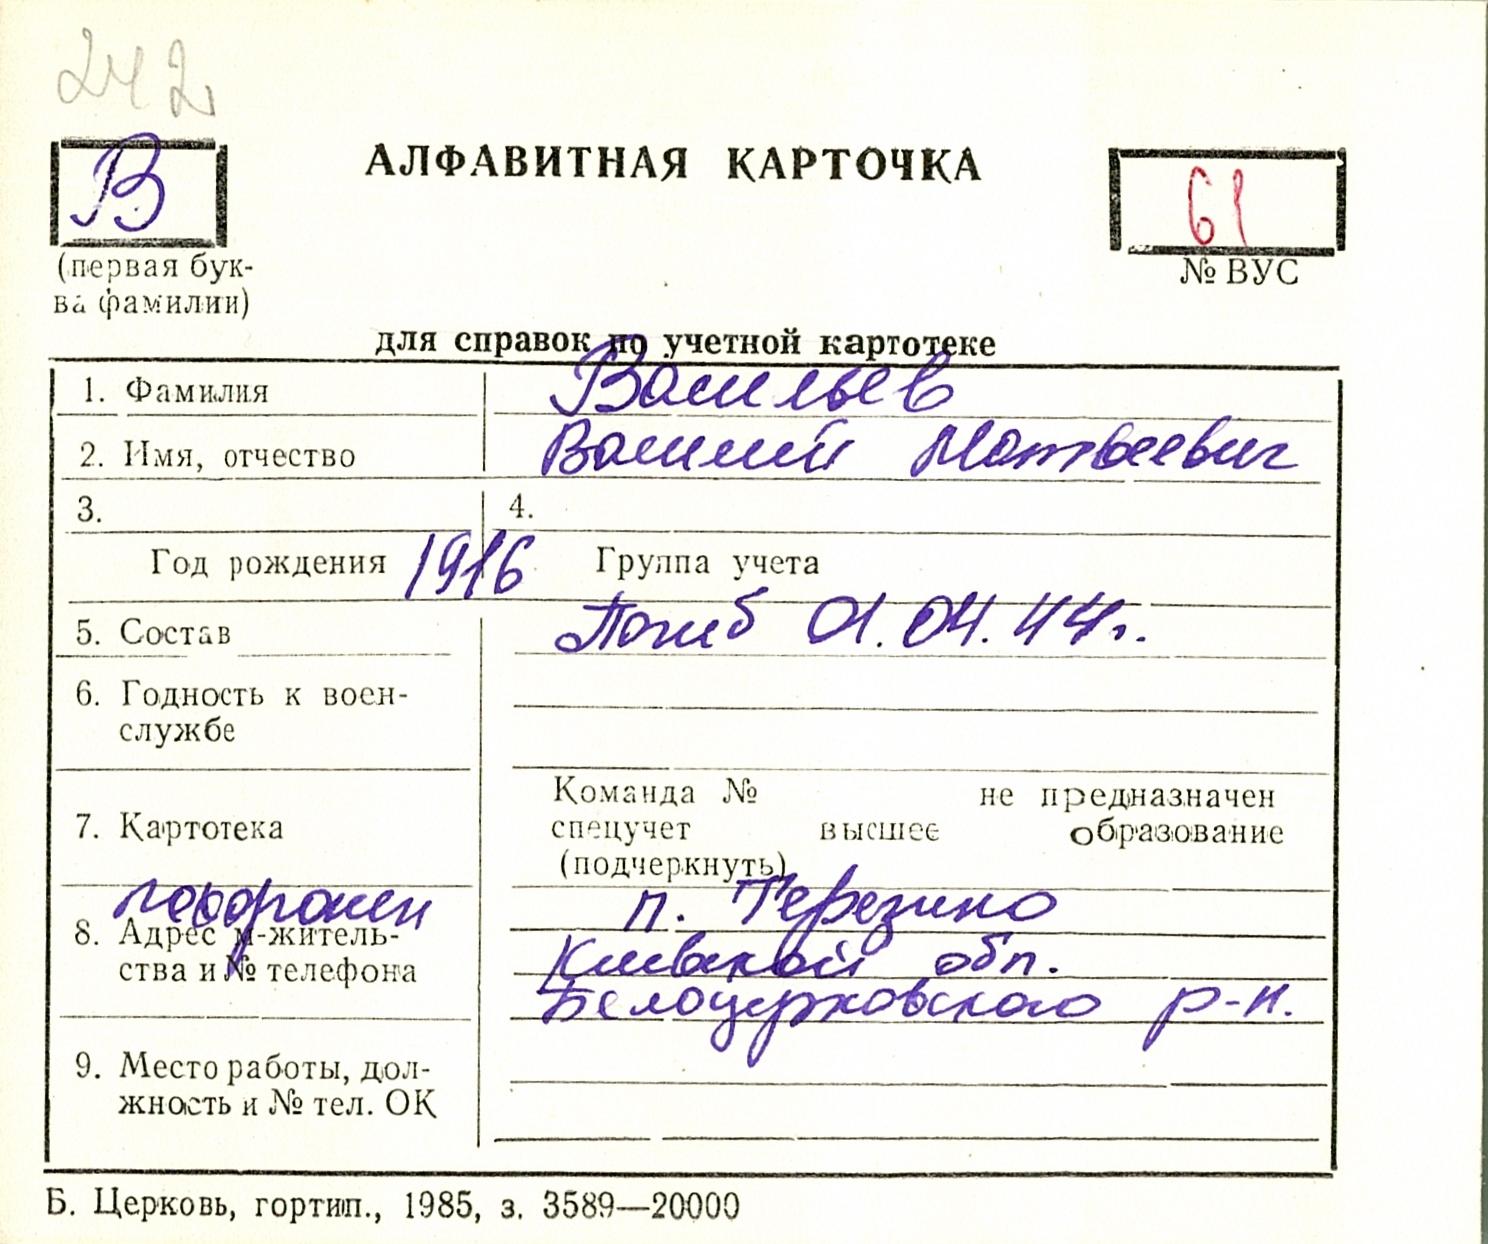 242
В
АЛФАВИТНАЯ КАРТОЧКА
61
(первая бук-
ва фамилии)
№ ВУС
для справок по учетной картотеке
1. Фамилия Васильев
2. Имя, отчество Василий Матвеевич
3. 4.
Год рождения 1916 Группа учета
5. Состав Погиб 01.04.44г.
6. Годность к воен-
службе
Команда № не предназначен
7. Картотека спецучет высшее образование
(подчеркнуть)
похоронен п. Терезино
8. Адрес м-житель-
ства и № телефона Киевской обл.
Белоцерковского р-н.
9. Место работы, дол-
жность и № тел. ОК
Б. Церковь, гортип., 1985, з. 3589—20000